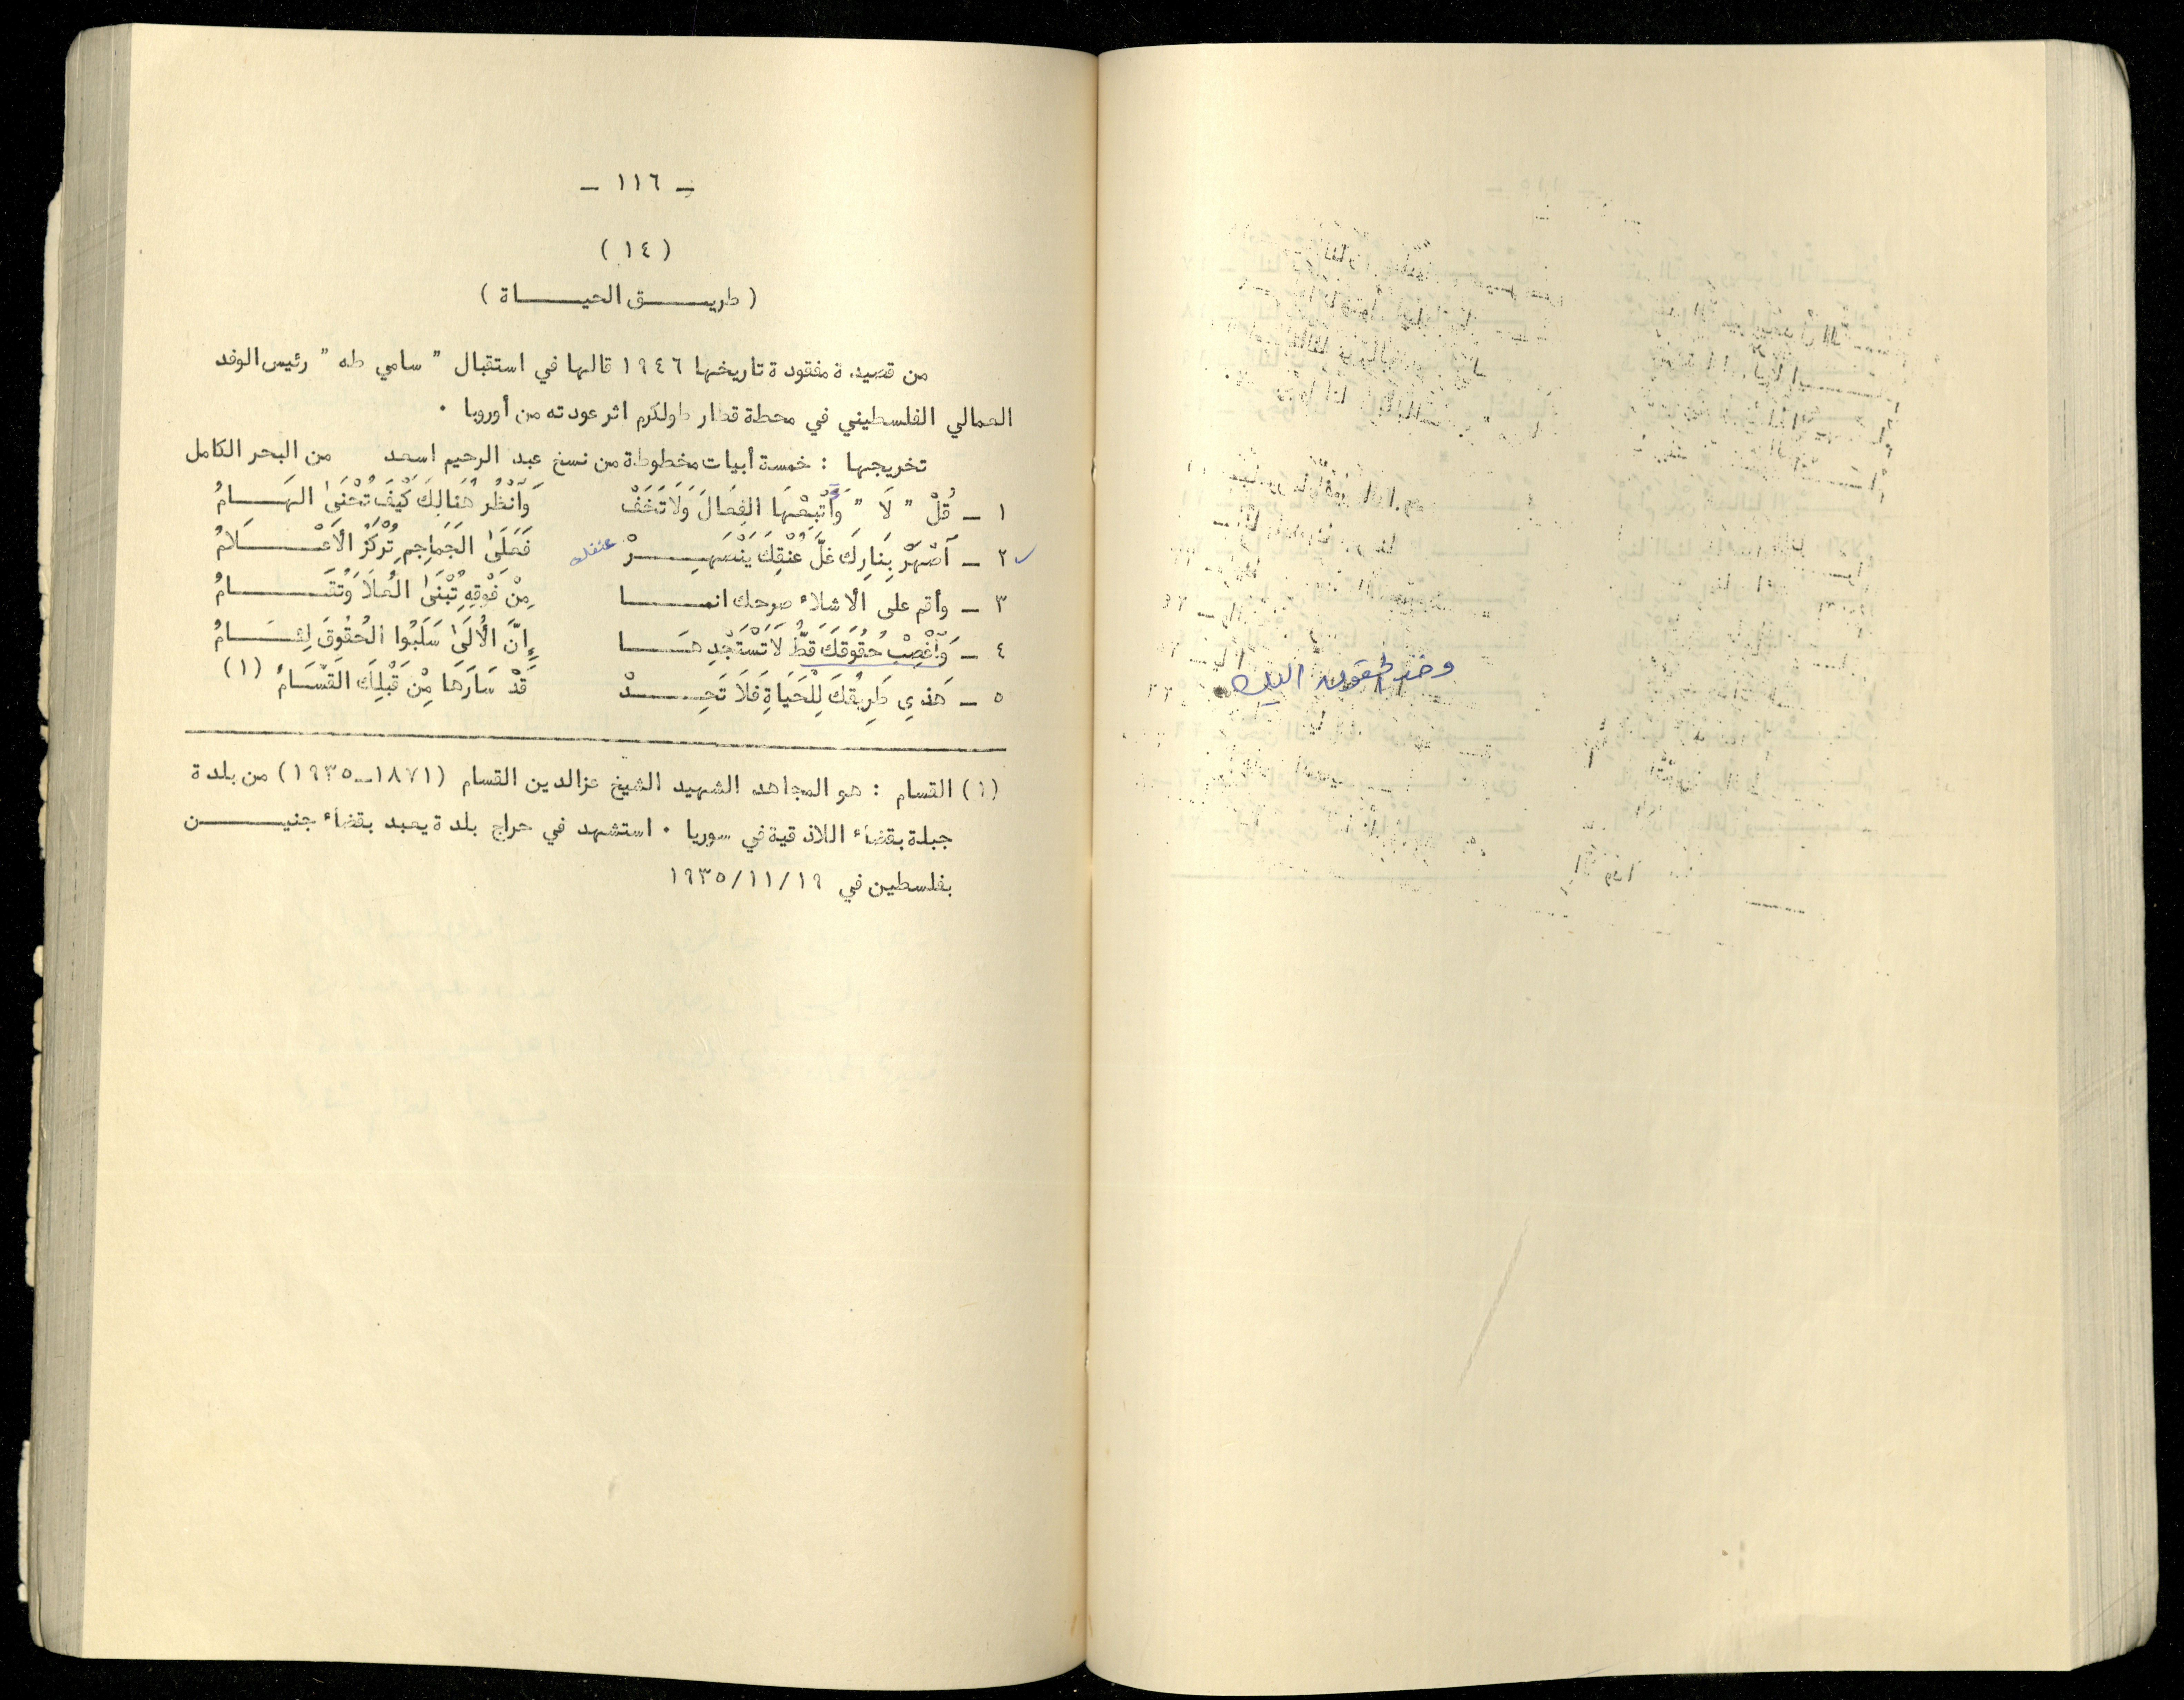 - ١١٦ -
( ١٤ )
( طريـــق الحيـــاة )
من قصيدة مفقودة تاريخها ١٩٤٦ قالها في استقبال " سامي طه " رئيس الوفد
العمالي الفلسطيني في محطة قطار طولكرم اثر عودته من أوروبا .
تخريجها : خمسة أبيات مخطوطة من نسخ عبد الرحيم اسعد من البحر الكامل
١ ـ قُلْ " لَا " وَأَتْبِعْهَا الفِعَالَ وَلَا تَخَفْ وَٱنْظُر هُنَالِكَ كَيْفَ تُحْنَىٰ الهَـــامُ
٢ ـ ٱصْهَرْ بِنَارِكَ غلَّ عُنْقِكَ يَنْصَهِـــرْ فَعَلَىٰ الجَمَاجِمِ تُرْكَزُ الأَعْـــلَامُ
عنقك
٣ ـ وأقم على الأشلاء صرحك انمـــا مِنْ فَوْقِهِ تُبْنَىٰ العُلَا وَتُقَـــامُ
٤ ـ وَٱغْصِبْ حُقُوقَكَ قطُّ لَا تَسْتَجْدِهَـــا إِنَّ الأُلَىٰ سَلَبُوا الحُقُوقَ لِئَـــامُ
٥ ـ هَذِي طَرِيقُكَ لِلْحَيَاةِ فَلَا تَحِـــدْ قَدْ سَارَهَا مِنْ قَبْلِكَ القَسَّامُ (١)
(١) القسام : هو المجاهد الشهيد الشيخ عزالدين القسام (١٨٧١ــ١٩٣٥) من بلدة
جبلة بقضاء اللاذقية في سوريا . استشهد في حراج بلدة يعبد بقضاء جنيـــن
بفلسطين في ١٩٣٥/١١/١٩